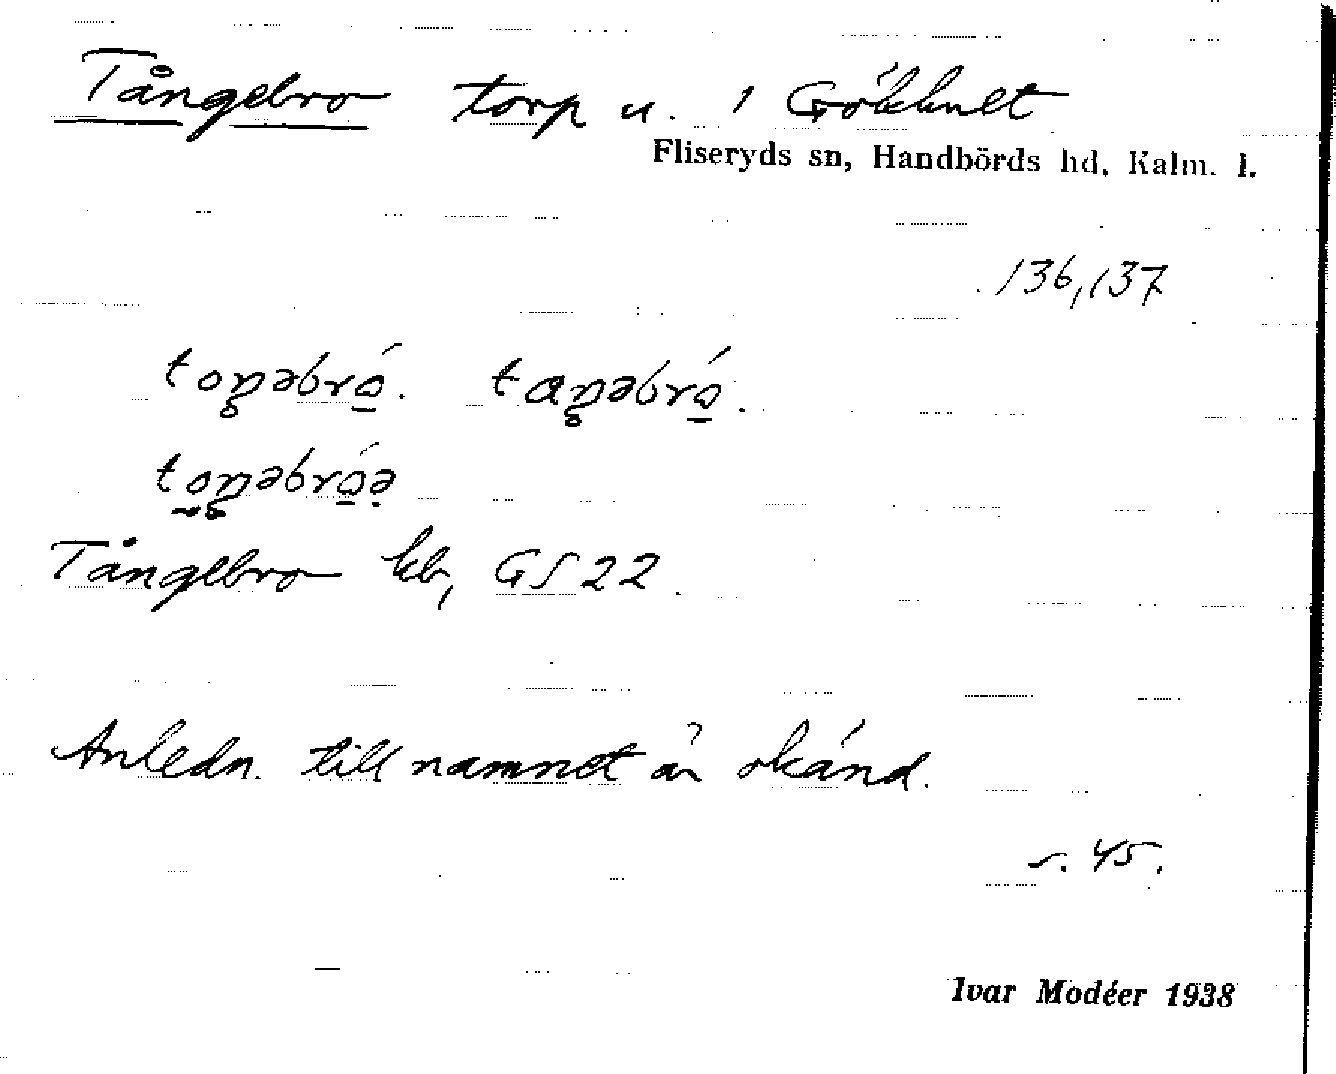 Tångebro torp u. 1 Gökhult
Fliseryds sn, Handbörds hd, Kalm. l.
136,137
Tångebro kb, GS 22.
Anledn. till namnet är okänd.
s. 45.
Ivar Modéer 1938